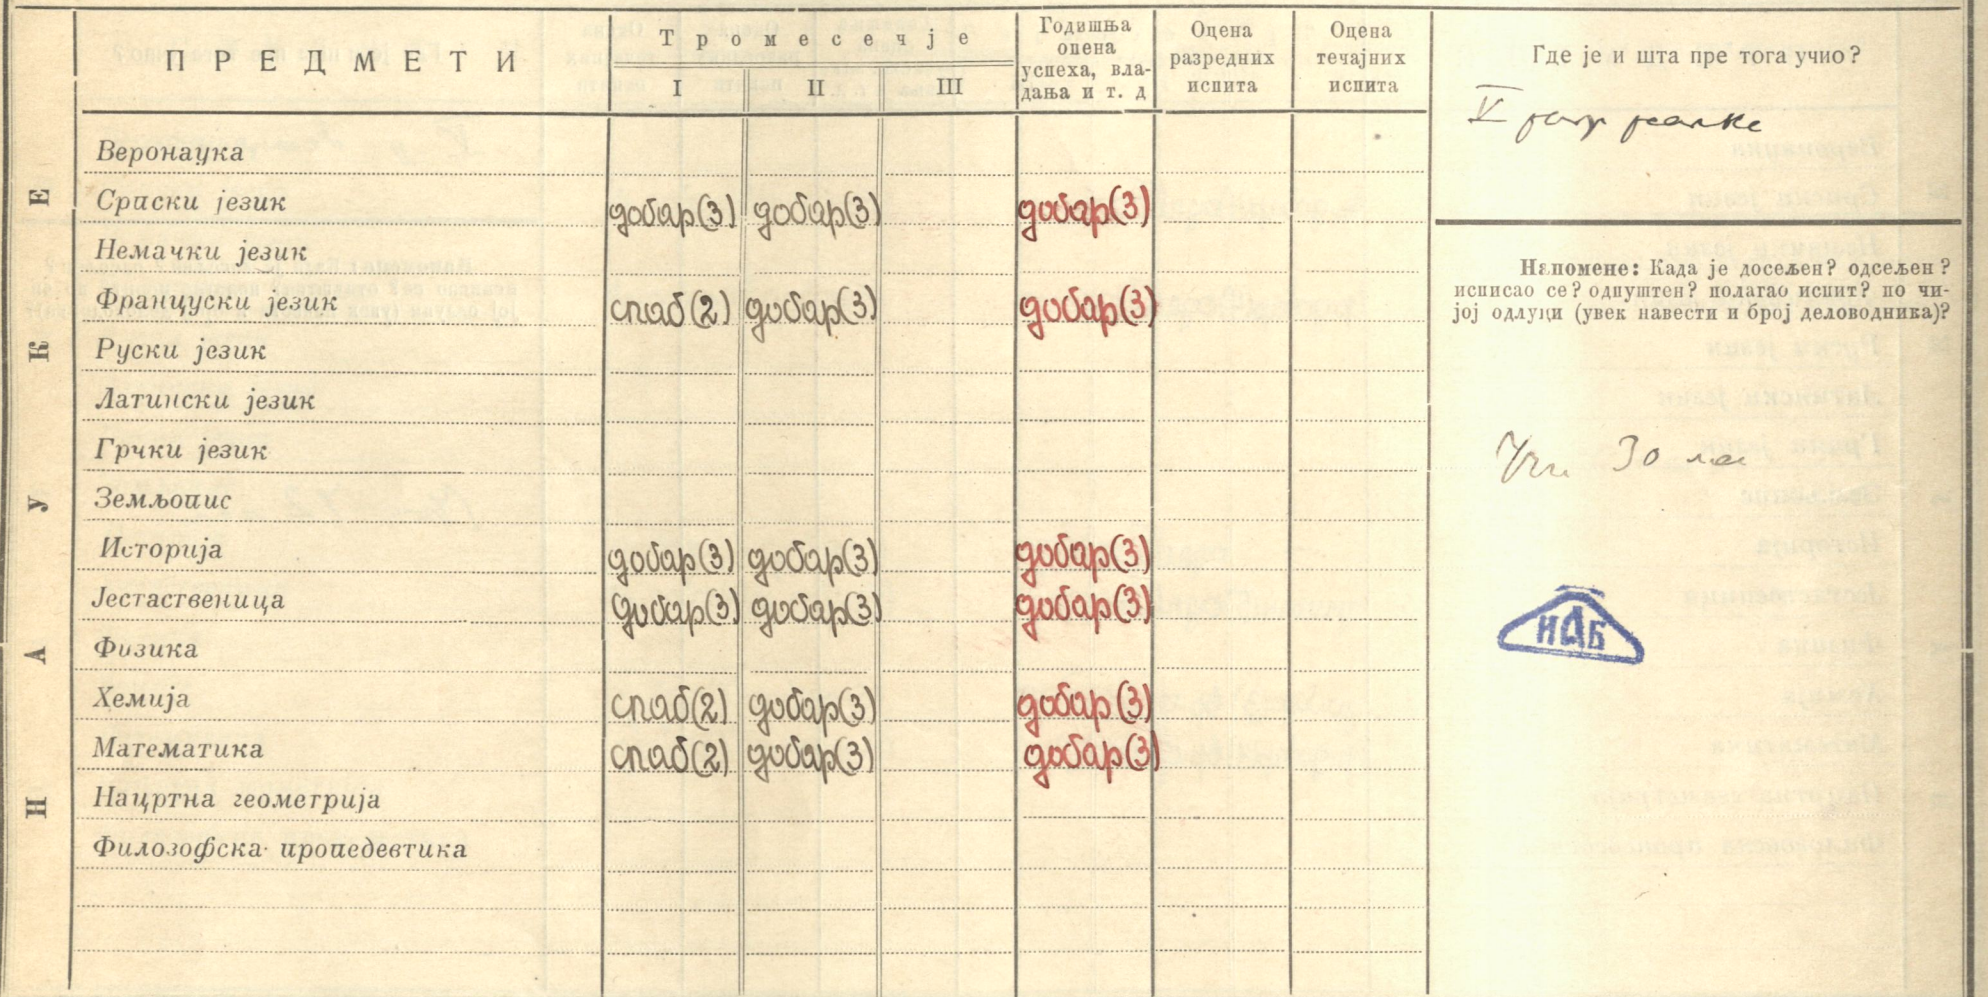 ПРЕДМЕТИ
Тромесечје
I II III
Годишња
оцена
успеха, вла-
дања и т. д
Оцена
разредних
испита
Оцена
течајних
испита
Где је и шта пре тога учио?
V
НАУКЕ
Веронаука
Српски језик добар(3) добар(3) добар(3)
Немачки језик
Француски језик слаб(2) добар(3) добар(3)
Руски језик
Латински језик
Грчки језик
Земљопис
Историја добар(3) добар(3) добар(3)
Јестаственица добар(3) добар(3) добар(3)
Физика
Хемија слаб(2) добар(3) добар(3)
Математика слаб(2) добар(3) добар(3)
Нацртна геометрија
Филозофска пропедевтика
Напомене: Када је досељен? одсељен?
исписао се? одпуштен? полагао испит? по чи-
јој одлуци (увек навести и број деловодника)?
30
ИАБ